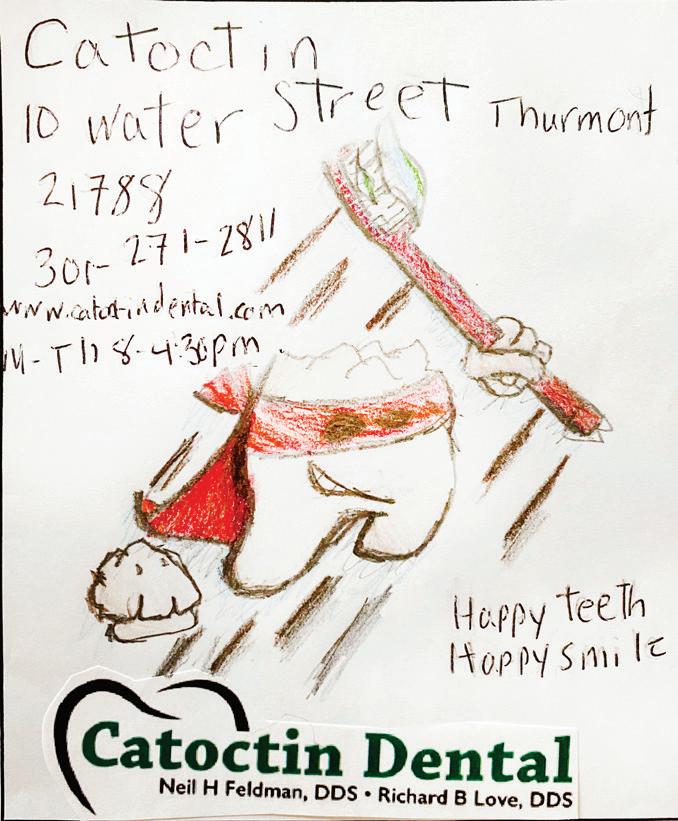 Catoctin
10 water Street Thurmont
21788
301-271-2811
www.catoctindental.com
M-Th 8-4:30pm
Happy teeth
Happy smile
Catoctin Dental
Neil H Feldman, DDS • Richard B Love, DDS